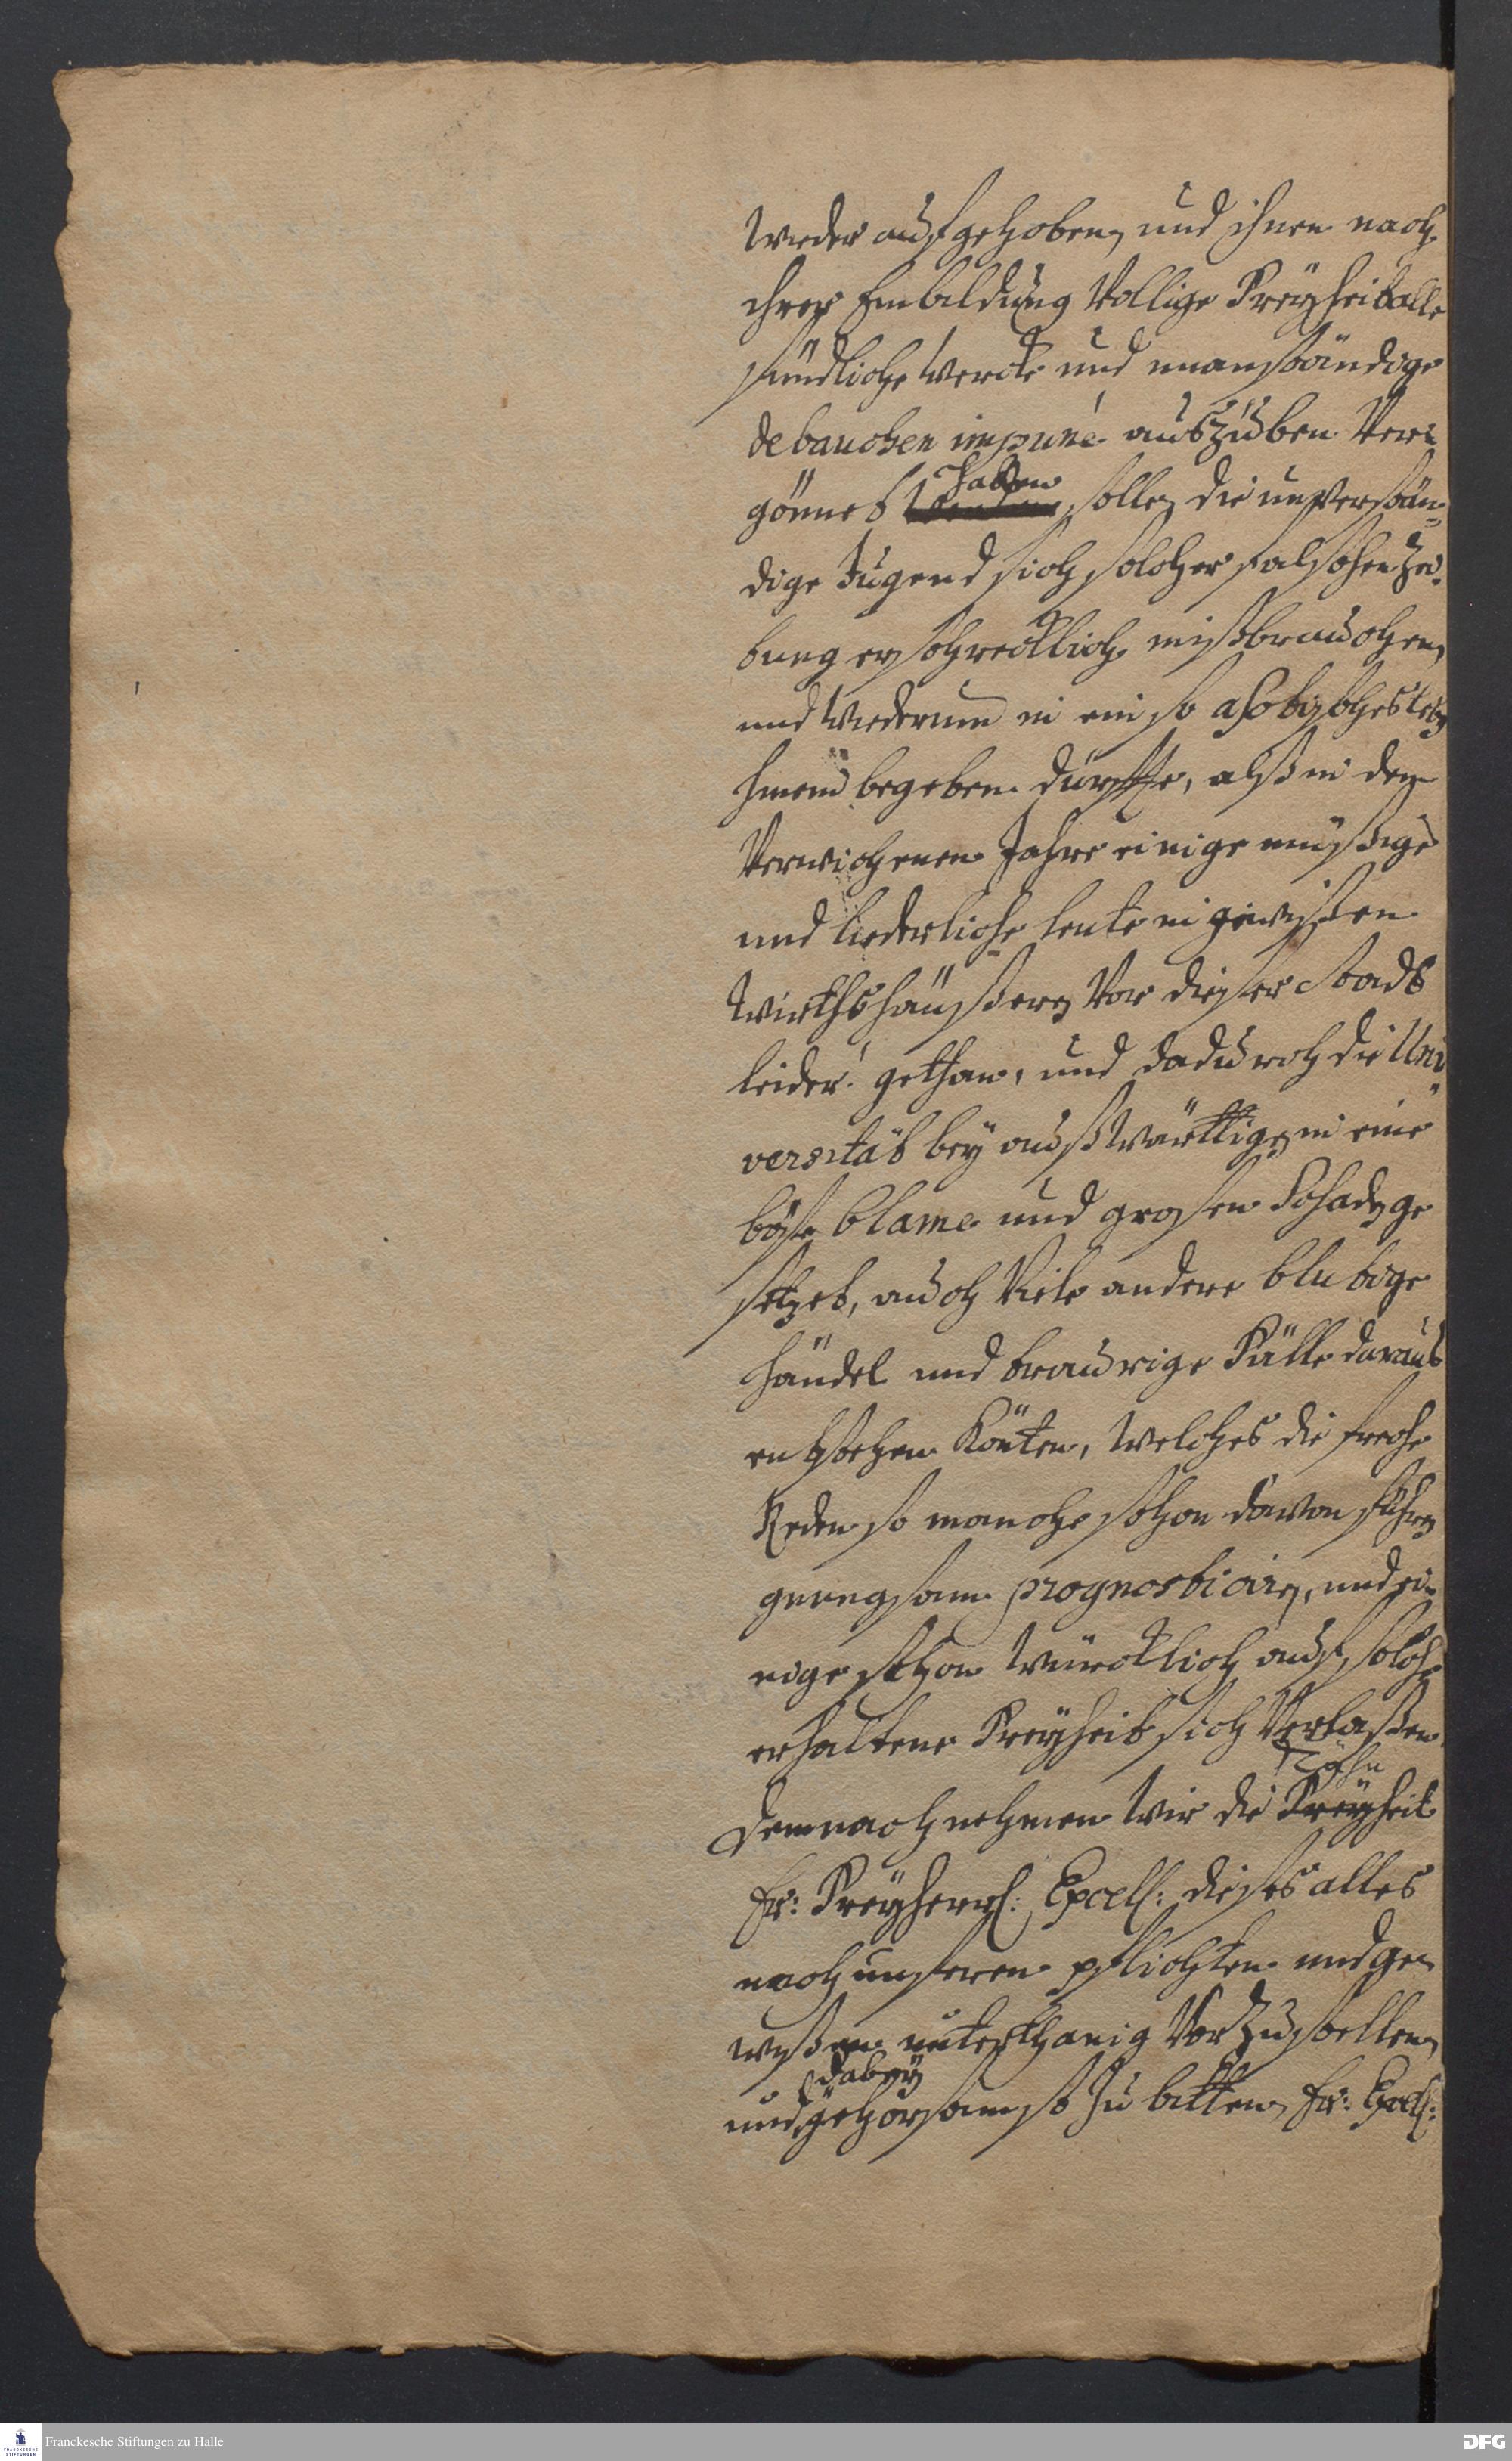 wieder aufgehoben, und ihnen nach
ihrer Einbildung vollige Freyheit alle
sündliche Wercke und unanständige
debauchen impuné auszuüben ver-
gönnet haben solle, die unverstän-
dige Jugend sich solcher falschen Zei-
tung erschrecklich mißbrauchen,
und wiederum in ein so
begeben dürffte, alß in den
verwichenen Jahre einige müßige
und liederliche leute in gewißen
Wirthshäußern vor dieser Stadt
leider! gethan, und dadurch die Uni-
versität bey außwärtigen in eine
böse blame und grosen Schaden ge
setzet, auch viele andere blutige
händel und traurige Fälle daraus
entstehen könten, welches die freche
Reden so manche schon davon führen
genugsam prognosticiren, und ei-
nige schon würcklich auf solche
erhaltene Freyheit sich verlaßen.
Demnach nehmen wir die Freyheit
Ew: Freyherrl: Excell: dieses alles
nach unseren pflichten und ge-
wißen unterthanig vorzustellen,
und dabey gehorsamst zu bitten, Ew: Excell:
Franckesche Stiftungen zu Halle
DFG